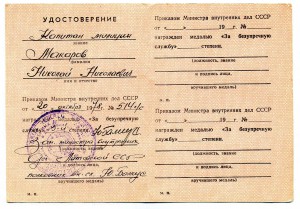 УДОСТОВЕРЕНИЕ
Капитан милиции
звание
Макаров
фамилия
Николай Николаевич
имя и отчество
Приказом Министра внутренних дел СССР
от « 20 » 1978 г. №
награжден медалью «За безупречную
службу» степени.
От имени
министра внутренних
дел ССР
подпись лица,
вручившего медаль)
М. П.
Приказом Министра внутренних дел СССР
от « » 19 г. №
награжден медалью «За безупречную
службу» степени.
(должность, звание
и подпись лица,
вручившего медаль)
М. П.
Приказом Министра внутренних дел СССР
от « » 19 г. №
награжден медалью «За безупречную
службу» степени.
(должность, звание
и подпись лица,
вручившего медаль)
М. П.